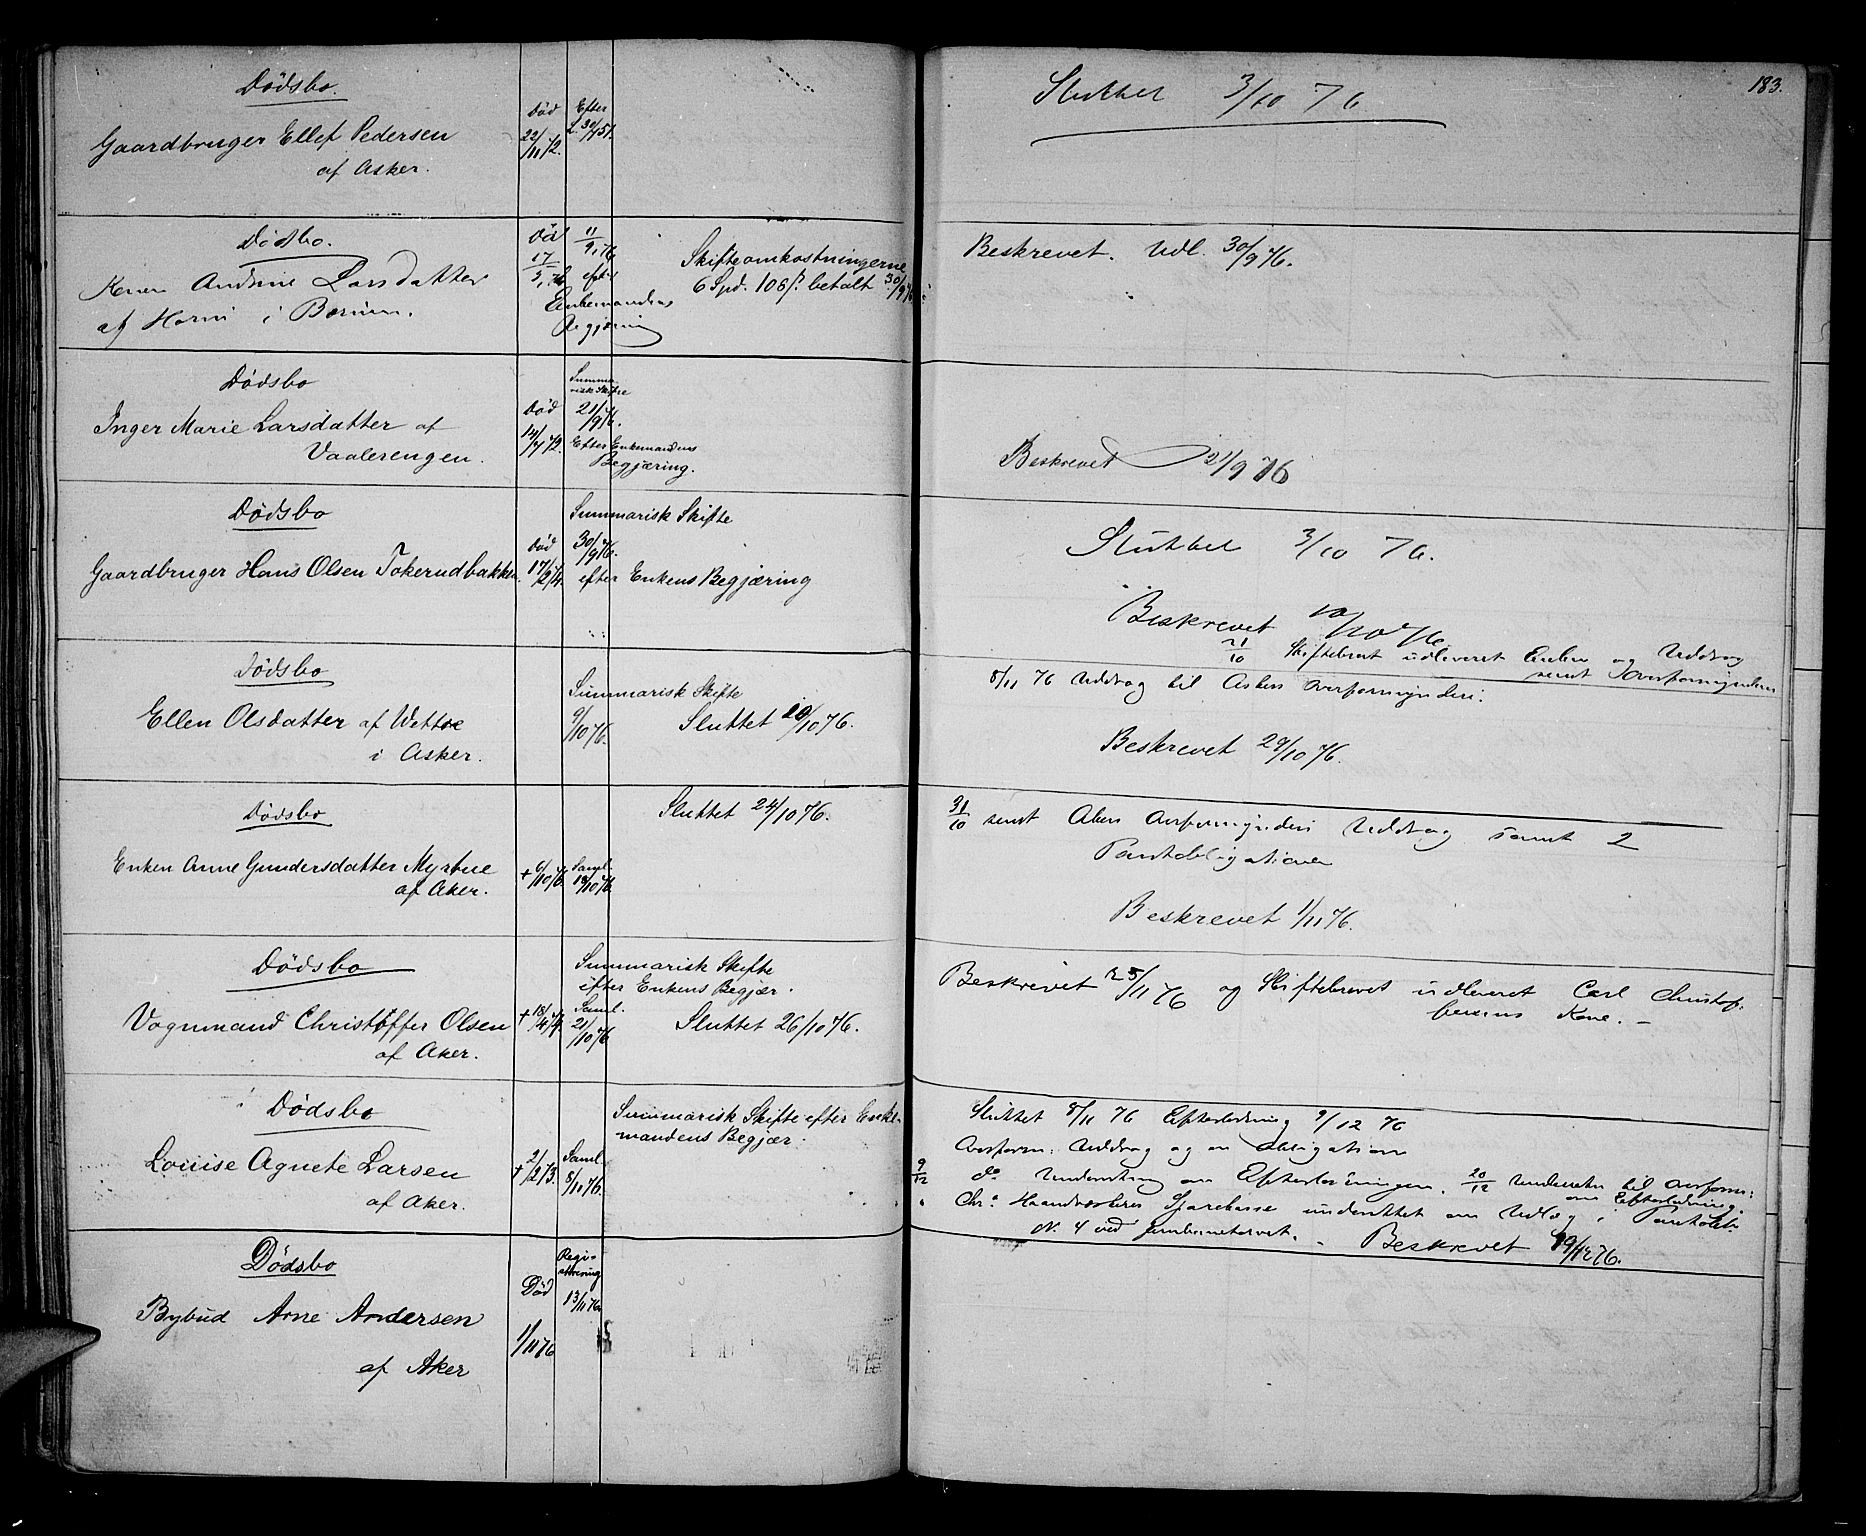 183.
Dødsbo.
Gaardbruger Ellef Pedersen
af Asker.
Død
22/11 72.
Efter
Sluttet 3/10 76
Dødsbo.
Konen Andrine Larsdatter
af Horni i Bærum.
Død
17/5
11/9 76
efter
Enkemandens
Begjæring
Skifteomkostningerne
6 Spd. 106 ß. betalt 30/9 76
Beskrevet. Udl. 30/9 76.
Dødsbo
Inger Marie Larsdatter af
Vaalerengen.
Død
14/7 72.
Summa-
risk Skifte
21/9 76.
Efter Enkemandens
Begjæring.
Beskrevet 21/9 76
Dødsbo
Gaardbruger Hans Olsen Tokerudbakken.
Død
17/2 74.
Summarisk Skifte
30/9 76.
efter Enkens Begjæring
Sluttet 3/10 76.
Beskrevet 10/10 76
21/10 Skiftebrevet udleveret Enken og Uddrag
sendt Overformynderi
Dødsbo
Ellen Olsdatter af Wettre
i Asker.
Summarisk Skifte
9/10 76.
Sluttet 20/10 76.
8/11 76 Uddrag til Askers Overformynderi.
Beskrevet 29/10 76.
Dødsbo
Enken Anne Gundersdatter Myrtue
af Aker.
+ 6/10 76
Saml.
18/10 76.
Sluttet 24/10 76.
31/10 sendt Akers Overformynderi Uddrag samt 2
Pantobligationer
Beskrevet 1/11 76.
Dødsbo
Vognmand Christoffer Olsen
af Aker.
+ 18/4 74
Summarisk Skifte
efter Enkens Begjær.
Saml.
21/10 76
Sluttet 26/10 76.
Beskrevet 25/11 76 og Skiftebrevet udleveret Carl Christof-
fersens Kone.
Dødsbo
Louise Agnete Larsen
af Aker.
+ 2/2 73.
Saml.
8/10 76.
Summarisk Skifte efter Enke-
mandens Begjær.
Sluttet 8/11 76 Efterlodning 9/12 76
Overform: Uddrag og en Obligation
9/12 do Underretning om Efterlodningen. 20/12 Underretn til Overform:
om Efterlodning.
" Chra Haandværkeres Sparekasse underrettet om Udlæg i Pantobl.
No. 4 ved Jernbanetorvet. - Beskrevet 19/12 76.
Dødsbo
Bybud Arne Andersen
af Aker
Død
1/11 76
Regi-
strering
13/11 76